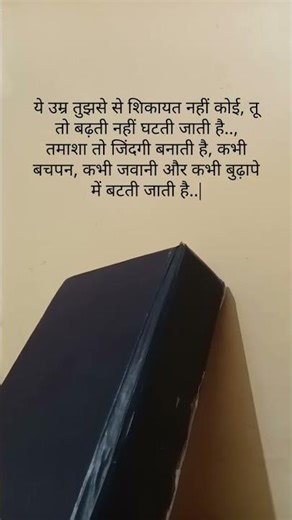 ये उम्र तुझसे से शिकायत नहीं कोई, तू
तो बढ़ती नहीं घटती जाती है..,
तमाशा तो जिंदगी बनाती है, कभी
बचपन, कभी जवानी और कभी बुढ़ापे
में बटती जाती है..|